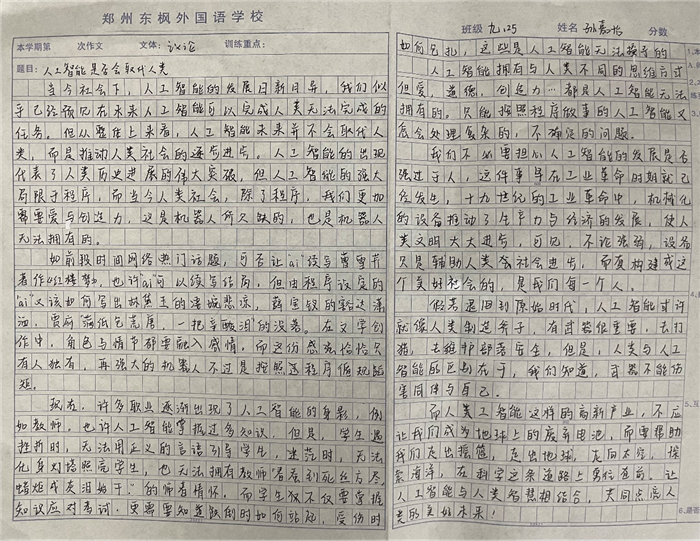 郑州东枫外国语学校
本学期第 次作文 文体：议论 训练重点：
题目：人工智能是否会取代人类
当今社会下，人工智能的发展日新月异，我们似
乎已经预见在未来人工智能可以完成人类无法完成的
任务。但从整体上来看，人工智能未来并不会取代人
类，而是推动人类社会的逐步进步。人工智能的出现
代表了人类历史进展的伟大突破，但人工智能的强大
局限于程序，而当今人类社会，除了程序，我们更加
需要爱与创造力，这是机器人所欠缺的，也是机器人
无法拥有的。
如前段时间网络热门话题，可否让"ai"续写曹雪芹
著作《红楼梦》，也许"ai"可以续写结局，但由程序设定的
"ai"又该如何写出林黛玉的凄城悲凉，薛宝钗的豁达潇
洒，贾府 一把辛酸泪的没落。在文学创
作中，角色与情节都要融入感情，而这份感觉恰恰只
有人独有，再强大的机器人不过是按照这程序循规蹈
矩。
现在，许多职业逐渐出现了人工智能的身影，例
如教师，也许人工智能掌握过多知识，但是，学生遇
挫折时，无法用正义的言语引导学生，迷茫时，无法
化身灯塔照亮学生，也无法拥有教师"春蚕到死丝方尽，
蜡炬成灰泪始干"的师者情怀，而学生仅不仅需掌握
知识应对考试，更需要知道跌倒时如何站起，受伤时
班级 九.25 姓名 孙嘉怡 分数
如何包扎，这些是人工智能无法教导的
人工智能拥有与人类不同的思维方式
但爱，道德，创造力…都是人工智能无法
拥有的。只能按照程序做事的人工智能又
怎会处理复杂的，不确定的问题。
我们不必要担心人工智能的发展是否
强过于人，这件事早在工业革命时期就已
经发生，十九世纪的工业革命中，机械化
的设备推动了生产力与经济的发展，使人
类文明大大进步，可见，不论强弱，设备
只是辅助人类社会进步，而真构建成这
个美好社会的，是我们每一个人。
假若退回到原始时代，人工智能或许
就像人类制造斧子，有武器很重要，去打
猎，去维护部落安全，但是，人类与人工
智能的区别在于，我们知道，武器不能伤
害同伴与自己。
而人类工智能这样的高新产业，不应
让我们成为地球上的废弃电池，而要帮助
我们走出摇篮，走出地球，友向太空，探
索海洋，在科学这条道路上勇往直前。让
人工智能与人类智慧相结合，共同点亮人
类的美好未来！